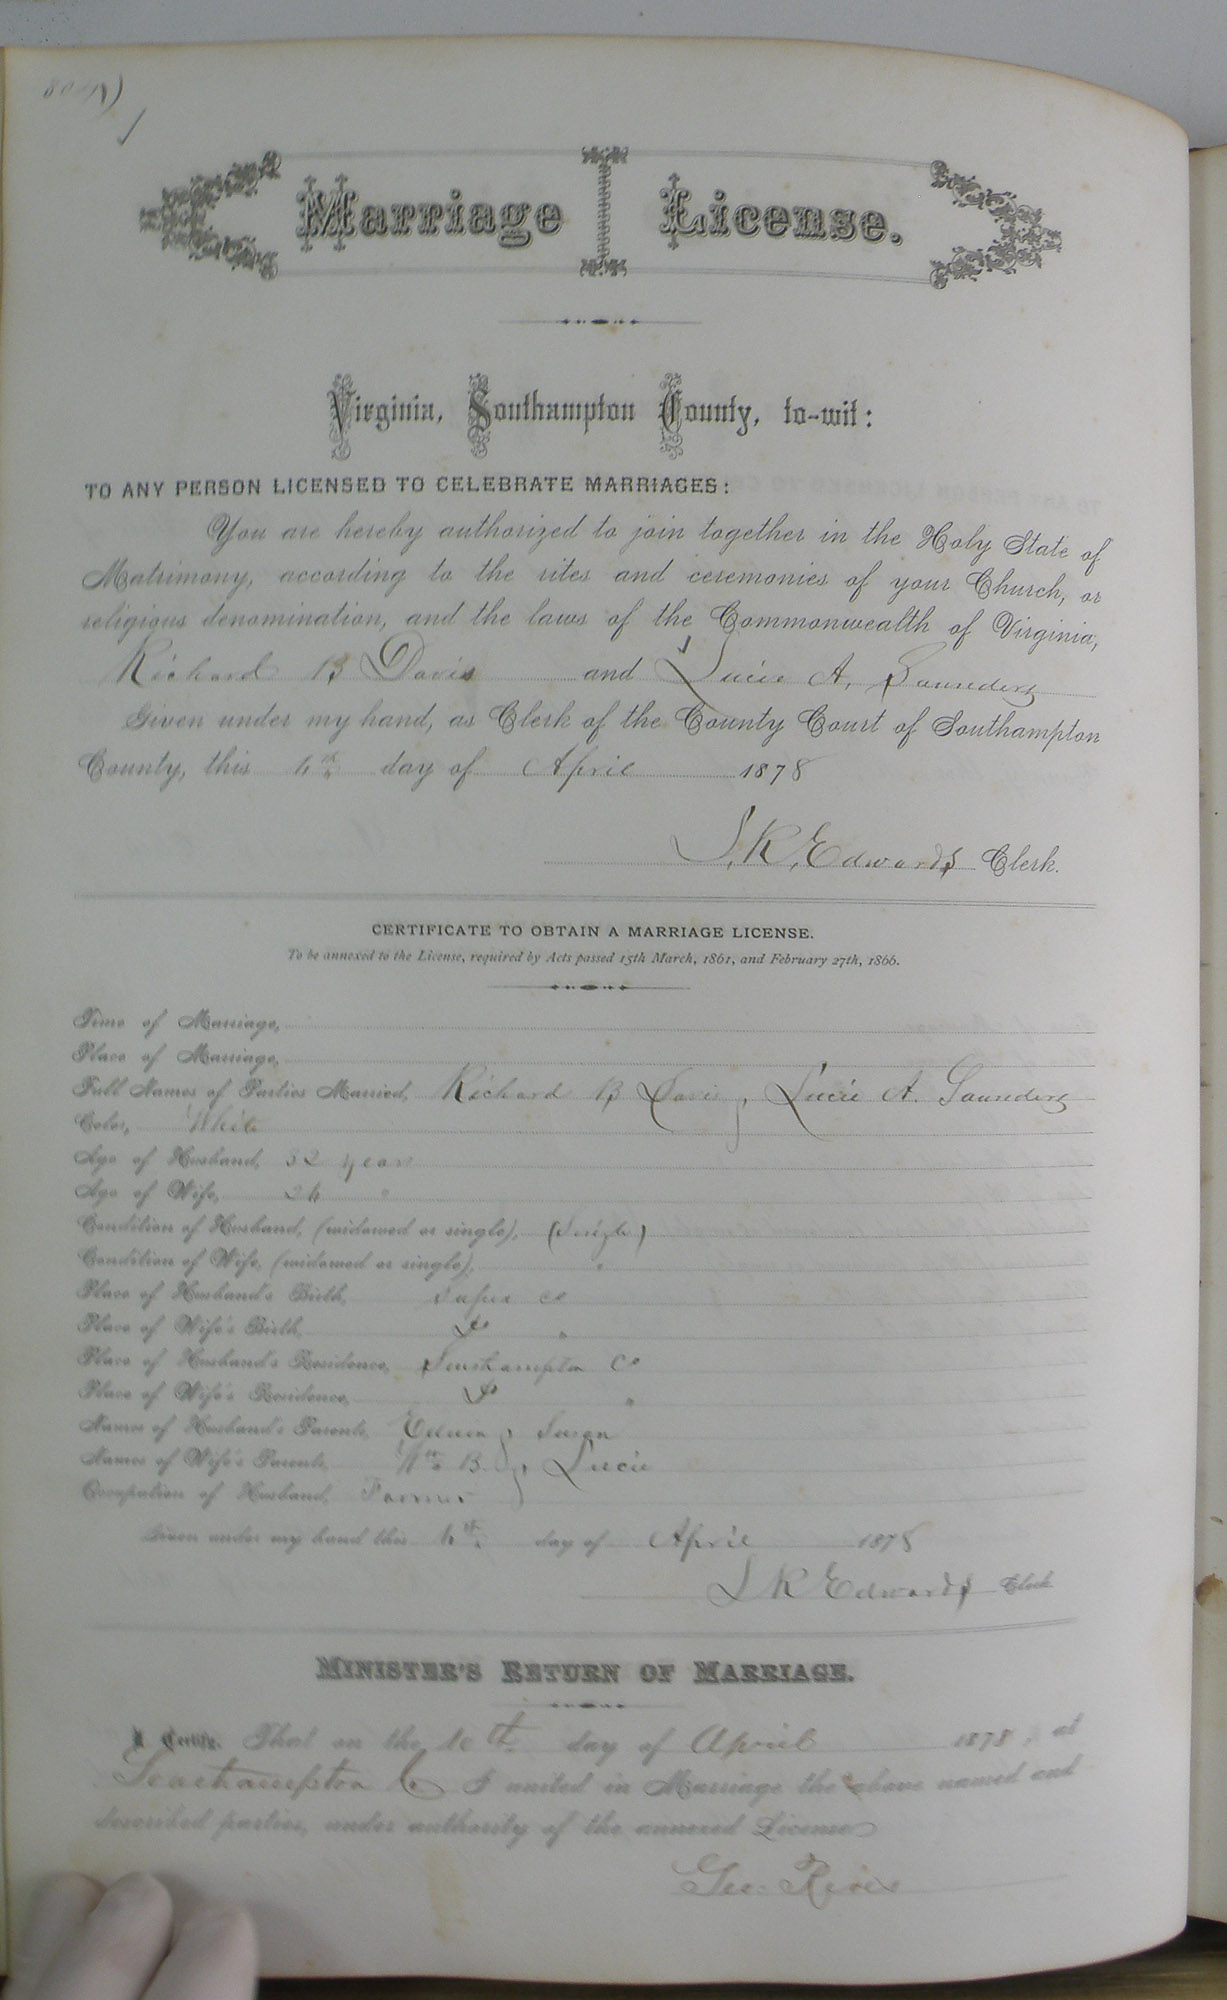 Marriage License.
Virginia, Southampton County, to-wit:
TO ANY PERSON LICENSED TO CELEBRATE MARRIAGES:
You are hereby authorized to join together in the Holy State of
Matrimony, according to the rites and ceremonies of your Church, or
religious denomination, and the laws of the Commonwealth of Virginia,
Richard B Davis and Lucie A. Saunders
Given under my hand, as Clerk of the County Court of Southampton
County, this day of April 1878
L. R. Edwards Clerk.
CERTIFICATE TO OBTAIN A MARRIAGE LICENSE.
To be annexed to the License, required by Acts passed 15th March, 1861, and February 27th, 1866.
Time of Marriage,
Place of Marriage,
Full Names of Parties Married, Richard B Davis, Lucie A. Saunders
Color, White
Age of Husband, 32 years
Age of Wife, "
Condition of Husband, (widowed or single), (Single)
Condition of Wife, (widowed or single), "
Place of Husband's Birth, Sussex Co
Place of Wife's Birth, Do "
Place of Husband's Residence, Southampton Co
Place of Wife's Residence, Do "
Names of Husband's Parents, Edwin, Susan
Names of Wife's Parents, Wm B., Lucie
Occupation of Husband, Farmer
Given under my hand this day of April 1878
L R Edwards Clerk
MINISTER'S RETURN OF MARRIAGE.
I Certify, That on the 10th day of April 1878, at
Southampton Co I united in Marriage the above named and
described parties, under authority of the annexed License
Geo. Rives